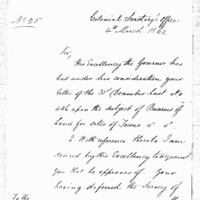 No. 25
Colonial Secretary's Office
4th March 1862
Sir,
His Excellency the Governor has
had under his consideration your
letter of the 31st December last No
236 upon the subject of Reserves of
Land for sites of Towns &c &c
2. With reference thereto I am
desired by His Excellency to acquaint
you that he approves of your
having deferred the Survey of
To the